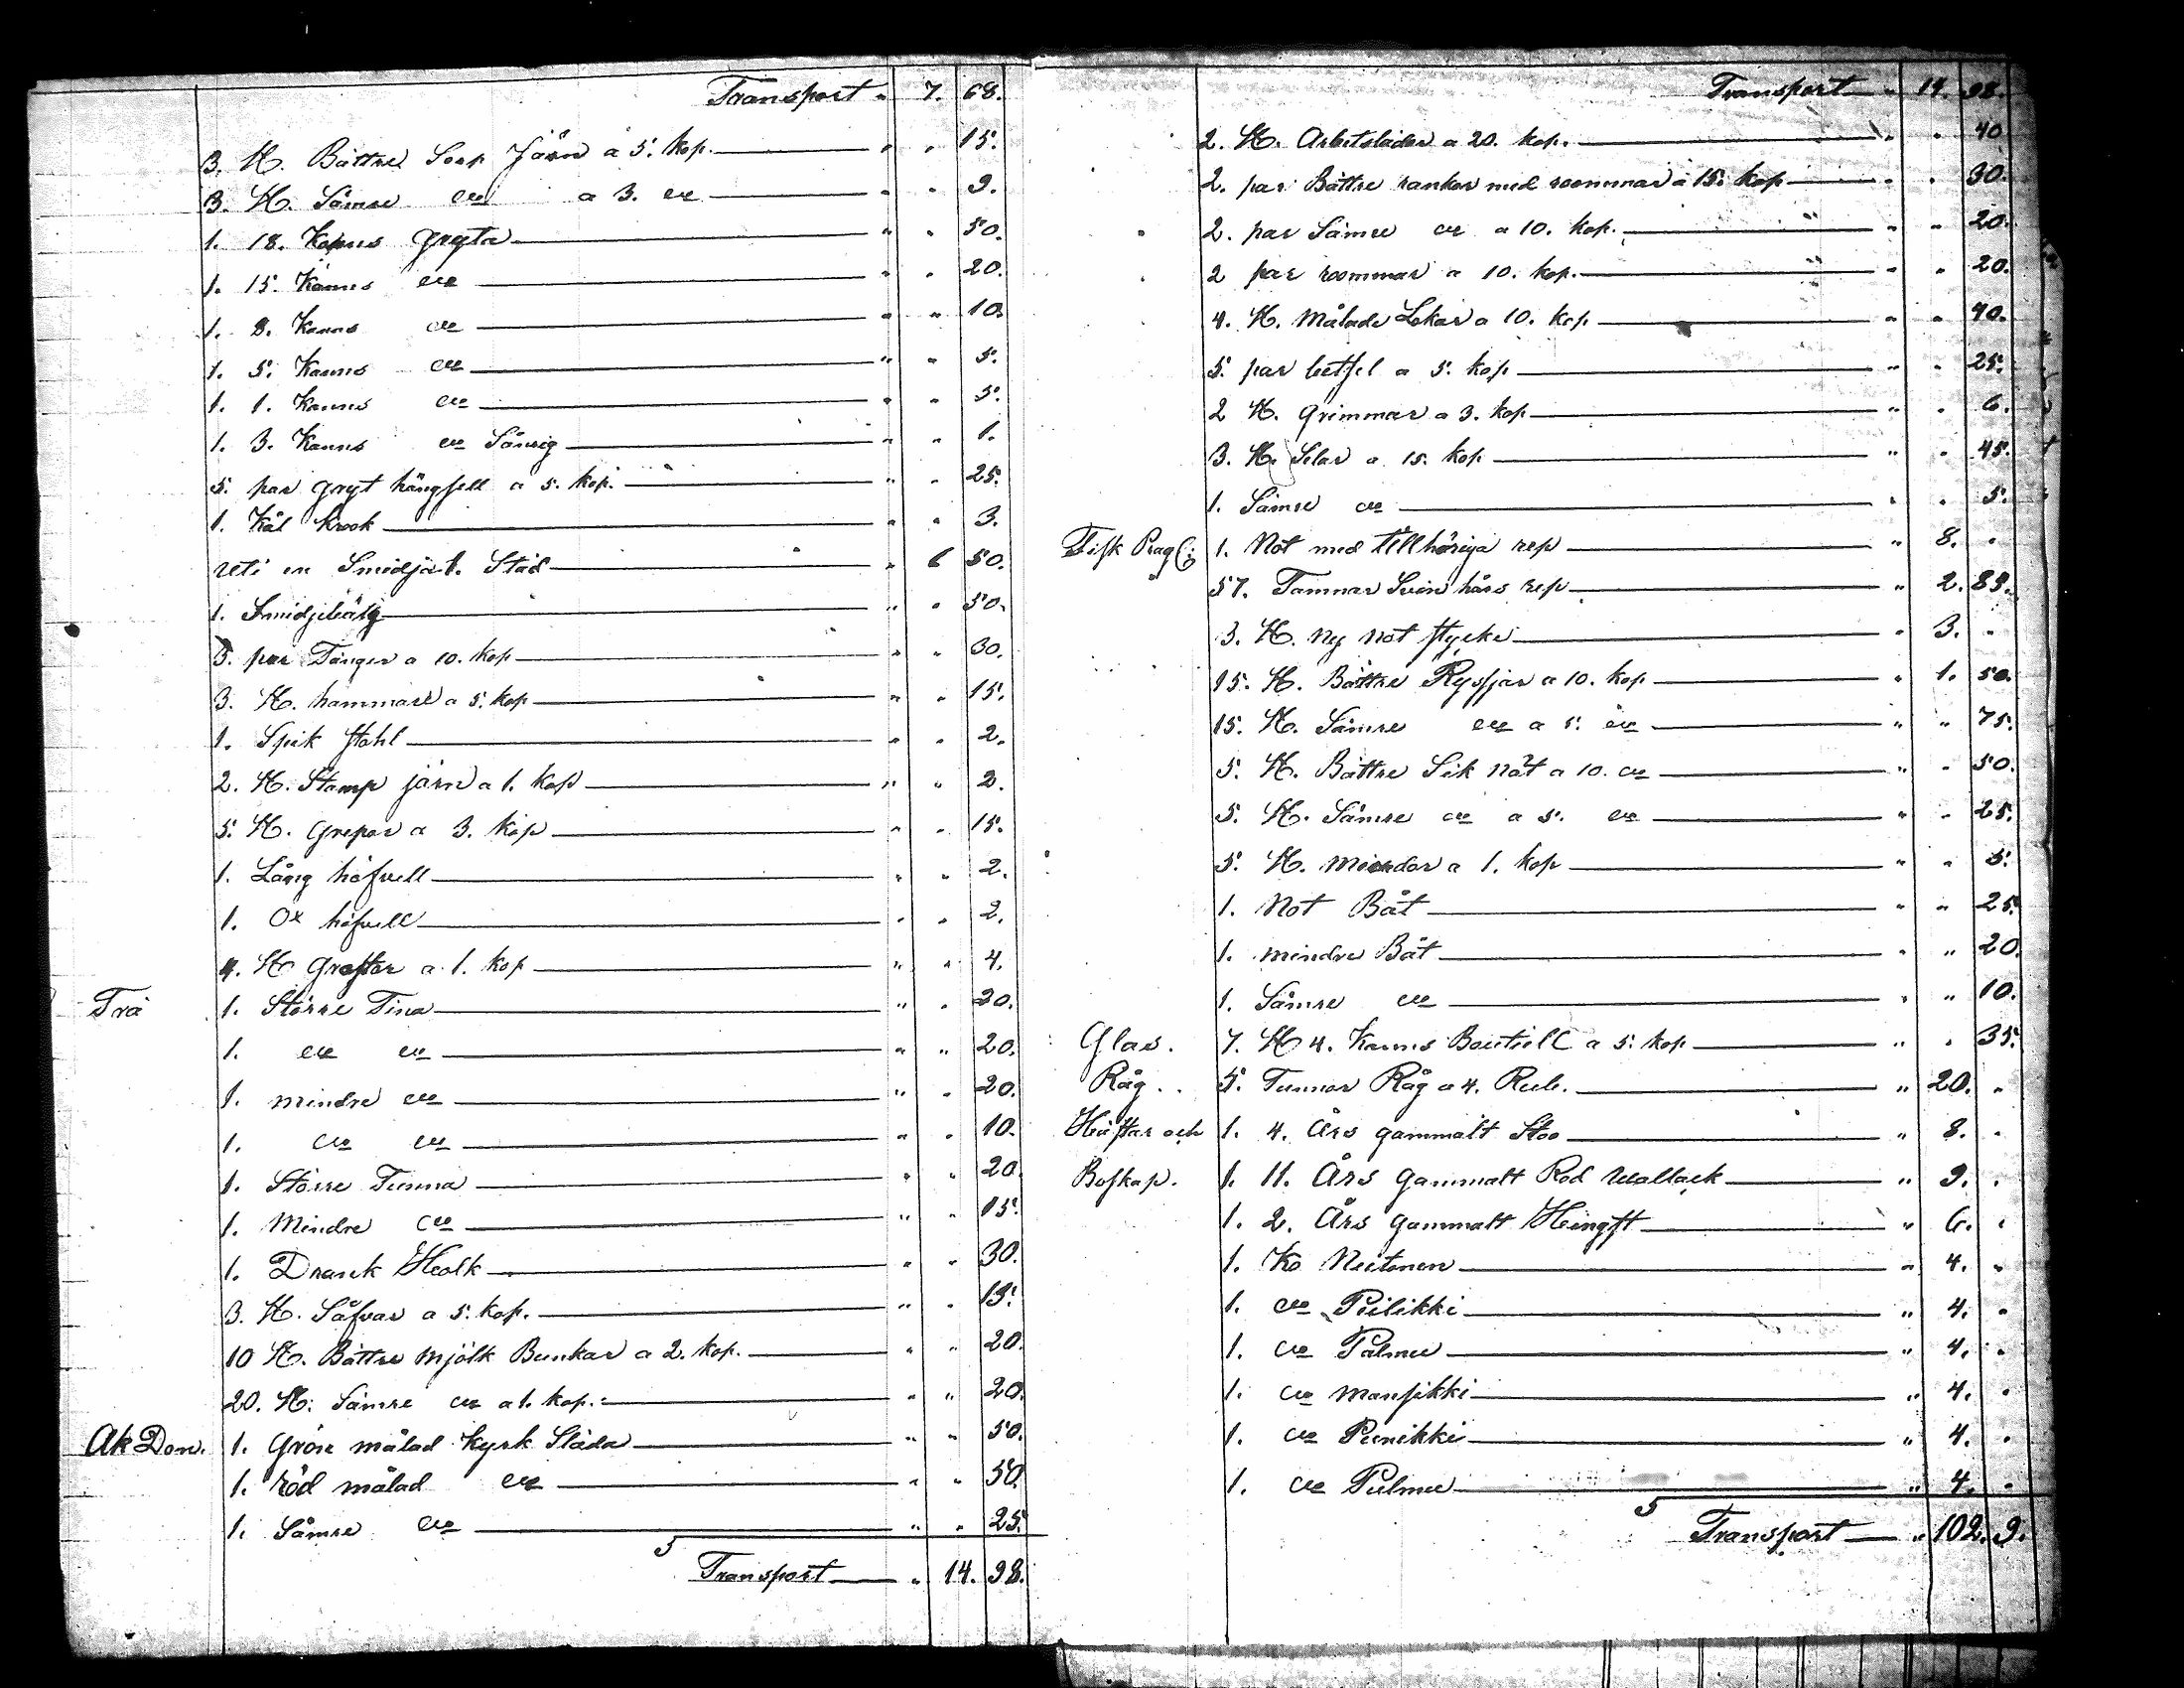 Transport " 7. 68.
3. St. Bättre Serp Järn a 5. kop. " " 15.
3. St. Sämre do a 3. do " " 9.
1. 18. Kanns Gryta " " 50.
1. 15. Kanns do " " 20.
1. 8. Kanns do " " 10.
1. 5. Kanns do " " 5.
1. 1. Kanns do " " 5.
1. 3. Kanns do Sönrig " " 1.
5. par Gryt hängsell a 5. kop. " " 25.
1. Kål Krook " " 3.
uti en Smidja 1. Städ " 6 50.
1. Smidjebälg " " 50.
3. par Tänger a 10. kop " " 30.
3. St. hammare a 5. kop " " 15.
1. Spik stahl " " 2.
2. St. Stamp järn a 1. kop " " 2.
5. St. Grepar a 3. kop " " 15.
1. Lång höfvell " " 2.
1. Ox höfvell " " 2.
4. St Graftar a 1. kop " " 4.
Trä 1. Större Tina " " 20.
1. do do " " 20.
1. mindre do " " 20.
1. do do " " 10.
1. Större Tunna " " 20.
1. Mindre do " " 15.
1. Drank Holk " " 30.
3. St. Såfvar a 5. kop. " " 15.
10 St. Bättre Mjölk Bunkar a 2. kop. " " 20.
20. St. Sämre do a 1. kop. " " 20.
Ak Don. 1. Grön målad Kyrk Släda " " 50.
1. röd målad do " " 50.
1. Sämre do " " 25.
Transport " 14. 98.
Transport " 14. 98.
2. St. Arbetslädar a 20. kop. " " 40
2. par Bättre rankor med roommar a 15. kop " " 30.
2. par Sämre do a 10. kop. " " 20.
2 par roommar a 10. kop. " " 20.
4. St. Målade Lokar a 10. kop " " 40.
5. par betsel a 5. kop " " 25.
2 St. Grimmar a 3. kop " " 6.
3. St. Selar a 15. kop " " 45.
1. Sämre do " " 5.
Fisk Brag 1. Not med tillhöriga rep " 8. "
57. Tamnar Svin hårs rep " 2. 85.
3. St. ny not stycke " 3. "
15. St. Bättre Ryssjar a 10. kop " 1. 50.
15. St. Sämre do a 5. do " " 75.
5. St. Bättre Sik nät a 10. do " " 50.
5. St. Sämre do a 5. do " " 25.
5. St. Mierdar a 1. kop " " 5.
1. Not Båt " " 25.
1. mindre Båt " " 20.
1. Sämre do " " 10.
Glas. 7. St 4. Kanns Boutiell a 5. kop " " 35.
Råg. 5. Tunnor Råg a 4. Rub. " 20. "
Hästar och 1. 4. Års gammalt Stoo " 8. "
Boskap. 1. 11. Års Gammalt Röd Wallack " 9. "
1. 2. Års gammalt Hingst " 6. "
1. Ko Neitonen " 4. "
1. do Piilikki " 4. "
1. do Palmu " 4. "
1. do Mansikki " 4. "
1. do Punikki " 4. "
1. do Pulmu " 4. "
Transport " 102. 9.